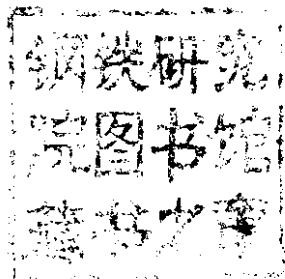 钢铁研究
院图书馆
藏书之章